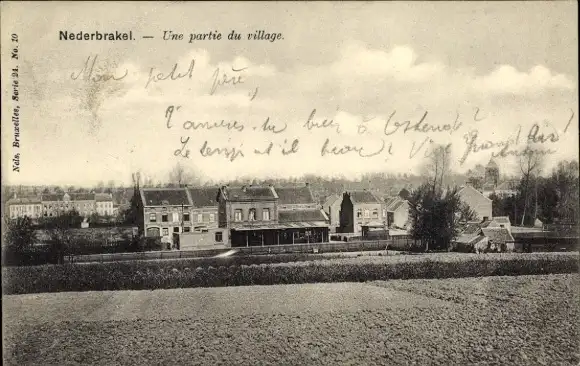 Nederbrakel. — Une partie du village.
Nels, Bruxelles, Serie 24. No. 10
Mon petit père,
T'amuses-tu bien à Ostende?
Le temps est il beau? Quand